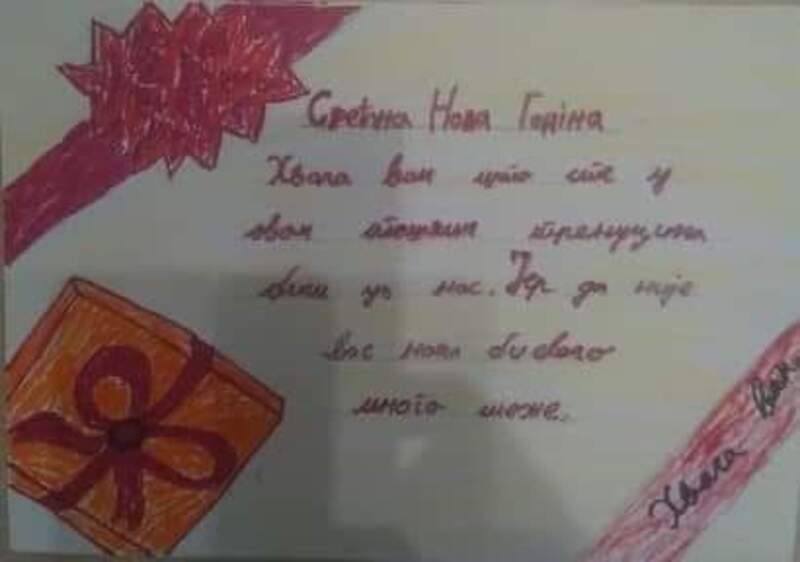 Срећна Нова Годіна
Хвала вам што сте у
овим тешким тренуцима
били уз нас. Јер да није
вас нама би
много теже.
Хвала вама